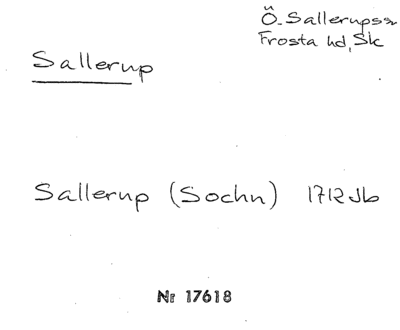 Ö. Sallerups sn
Frosta hd, Sk
Sallerup
Sallerup (Sochn) 1712 Jb
Nr 17618